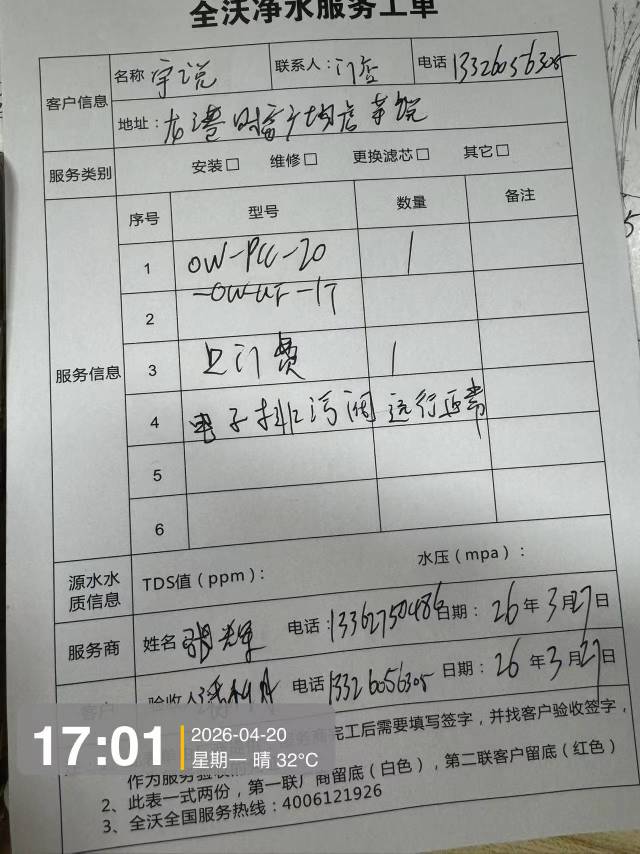 全沃净水服务工单
客户信息
名称 宇说 联系人：门店 电话 13326056305
地址：古港财富广场店芋说
服务类别 安装□ 维修□ 更换滤芯□ 其它□
服务信息
序号 型号 数量 备注
1 OW-PCC-20 1
2 -OW-UF-1T
3 上门费 1
4 电子排污阀运行正常
5
6
源水水质信息 TDS值（ppm）： 水压（mpa）：
服务商 姓名 电话：13362750486 日期：26年3月27日
客户 验收人 电话 13326056305 日期：26年3月27日
完工后需要填写签字，并找客户验收签字，
作为服务验收
2、此表一式两份，第一联厂商留底（白色），第二联客户留底（红色）
3、全沃全国服务热线：4006121926
17:01
2026-04-20
星期一 晴 32℃